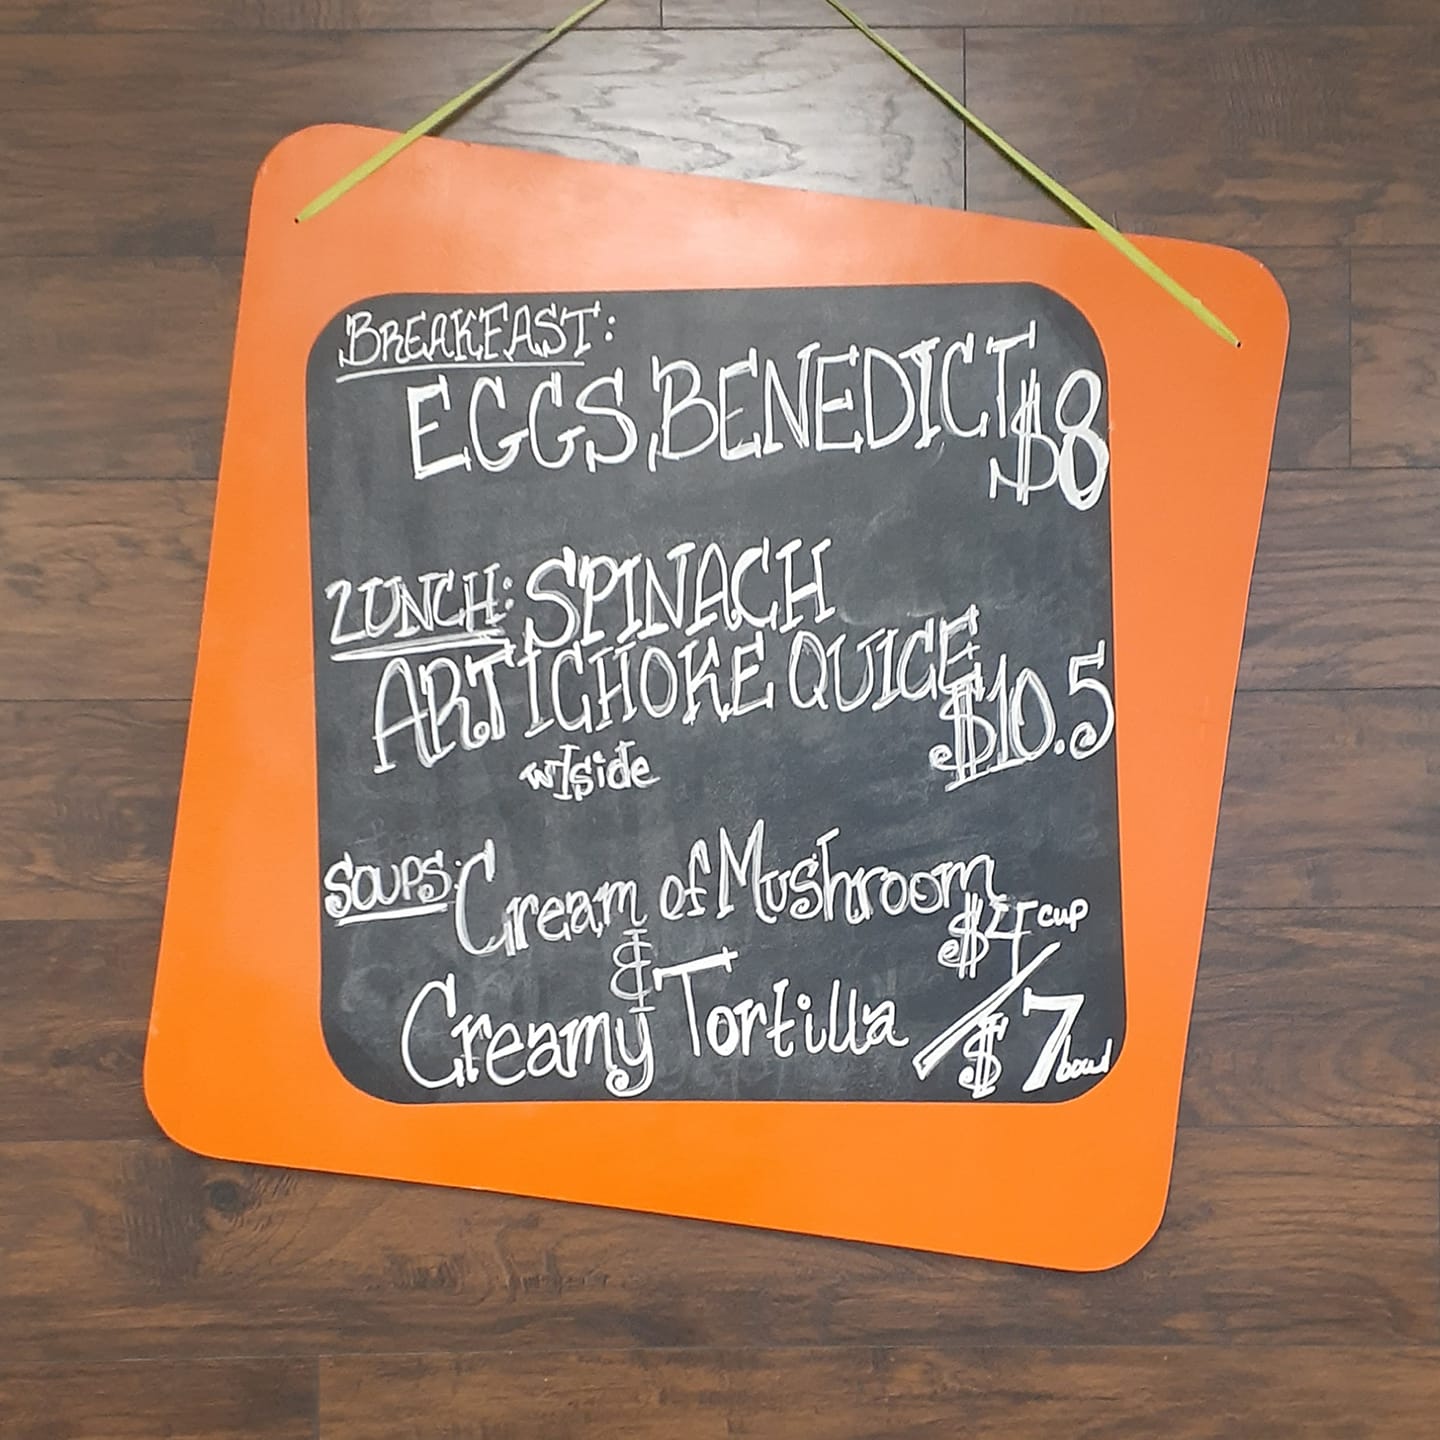 BREAKFAST:
EGGS BENEDICT $8
LUNCH: SPINACH
ARTICHOKE QUICE $10.5
w/side
SOUPS: Cream of Mushroom
&
$4 cup
Creamy Tortilla / $7 bowl